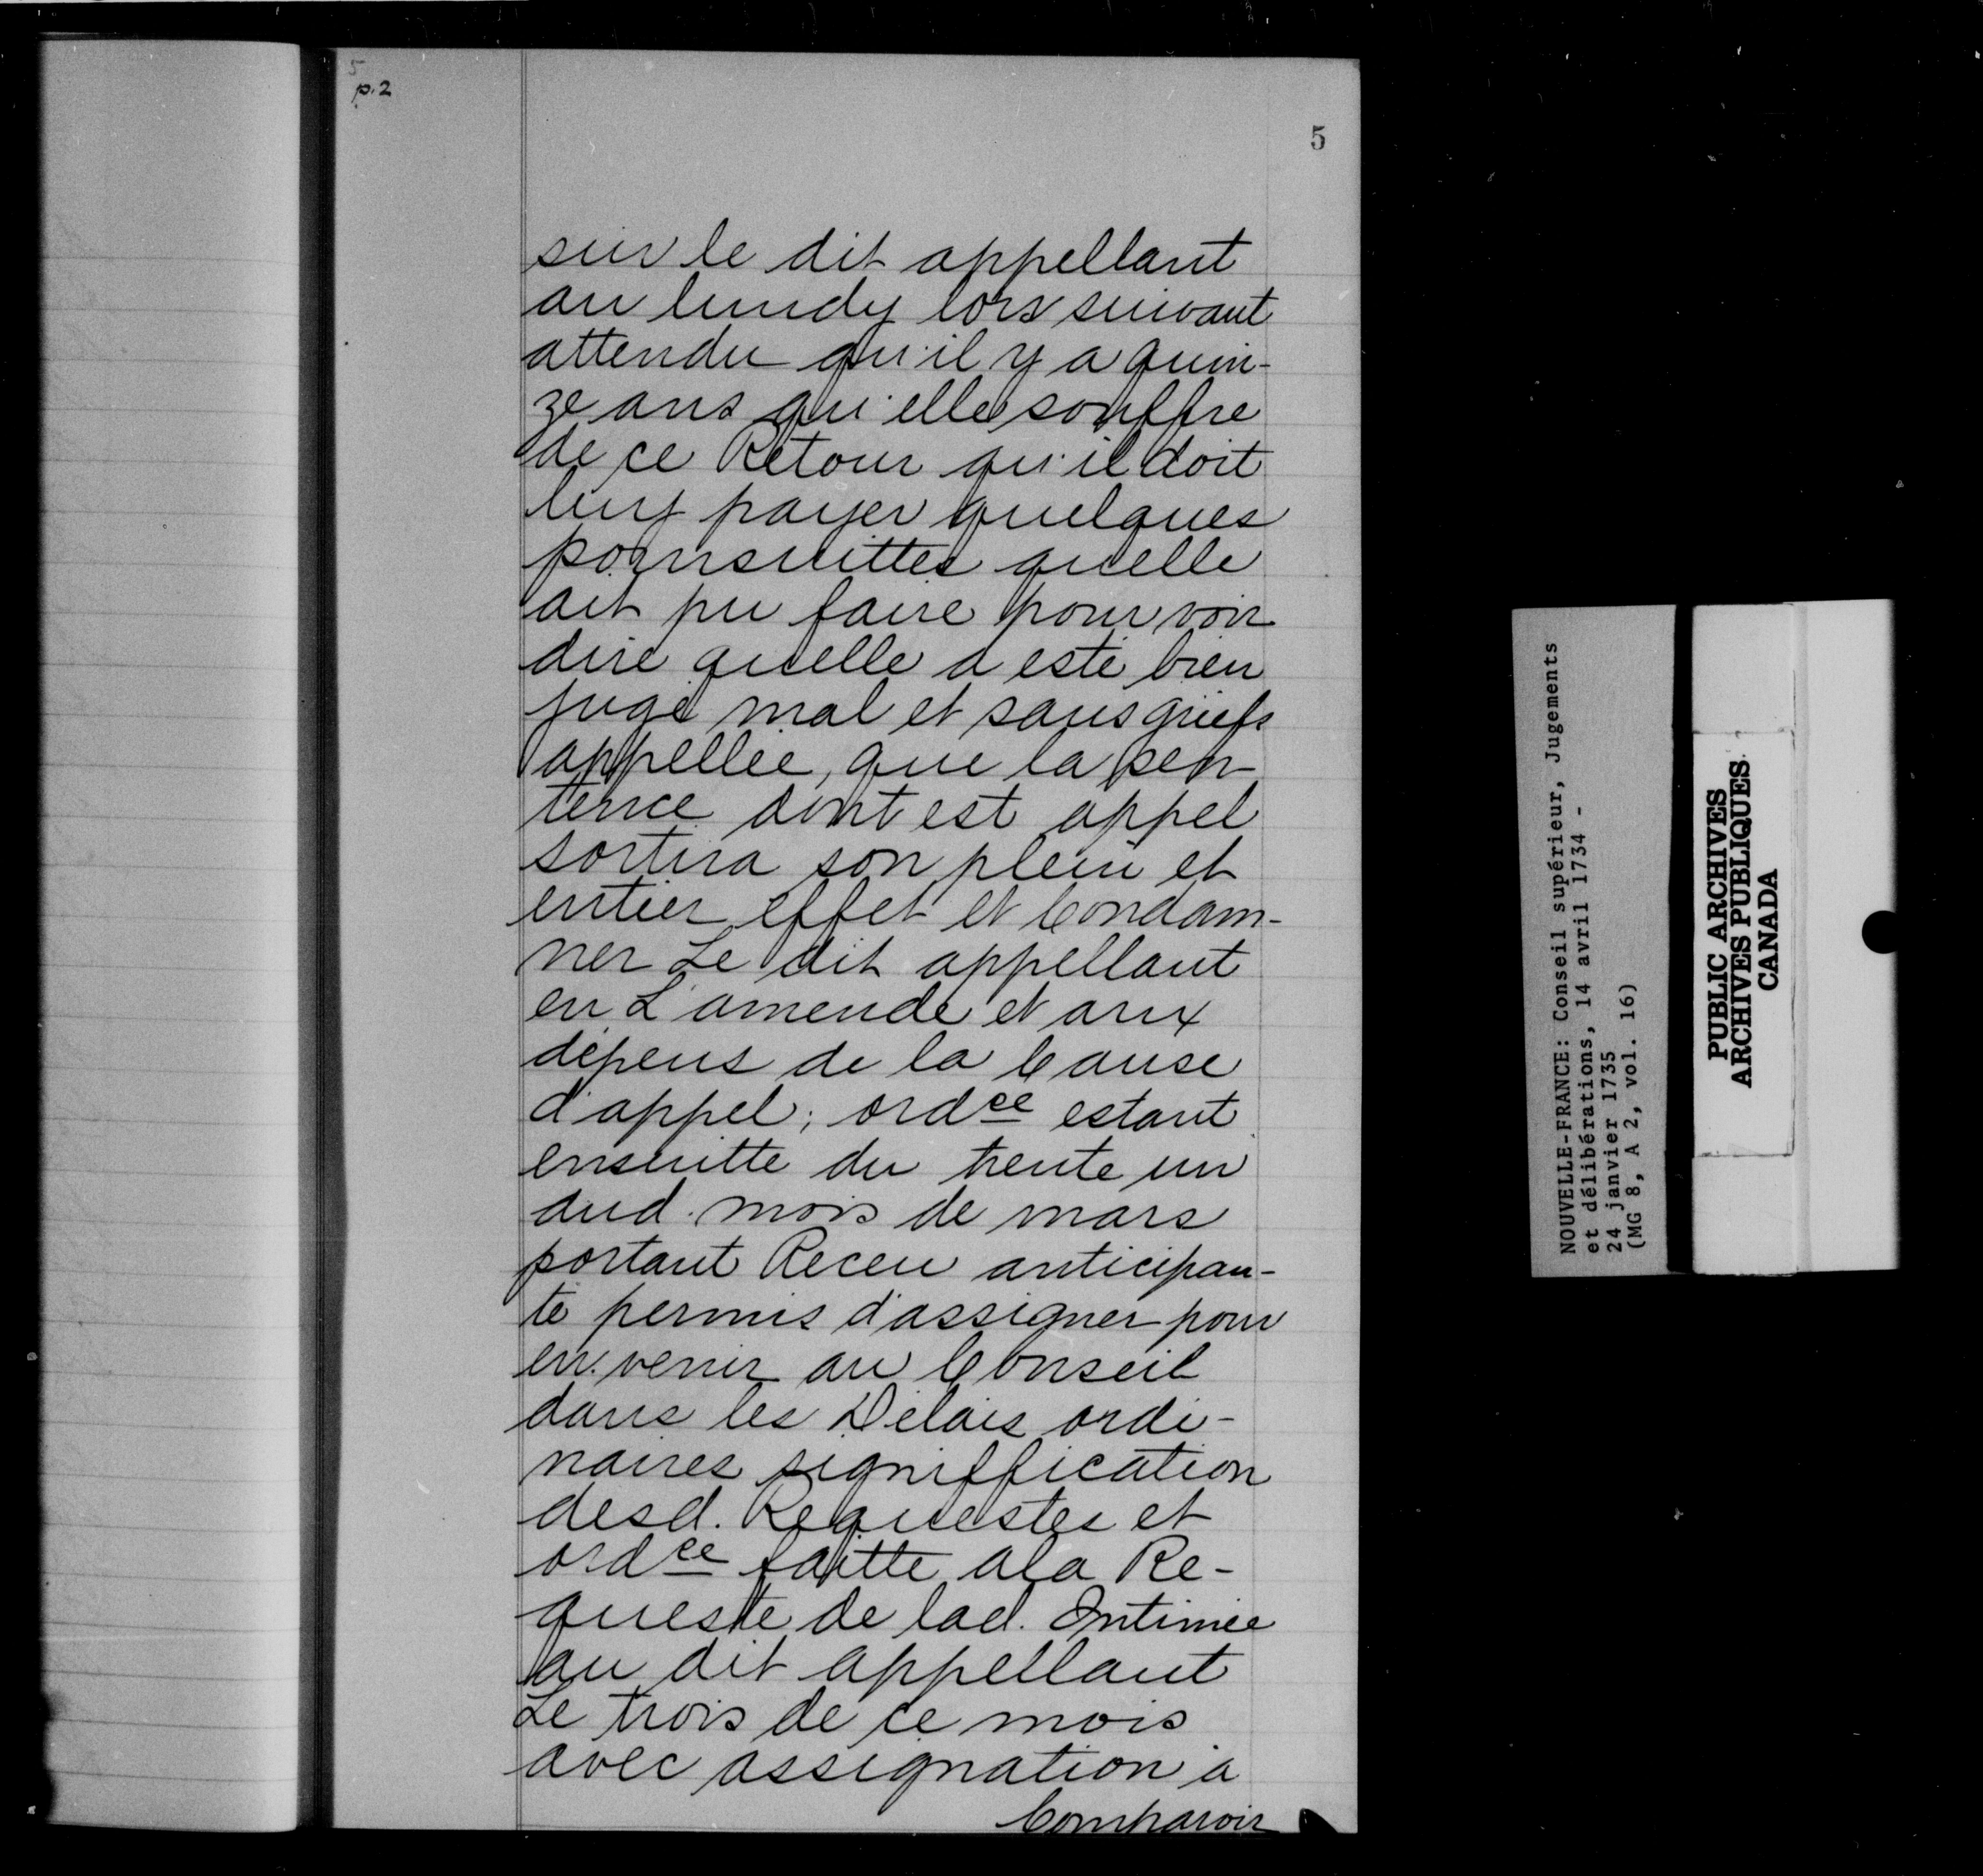 5
p.2
5
sur le dit appellant
au lundy lors suivant
attendu qu'il y a quin-
ze ans qu'elle souffre
de ce Retour qu'il doit
luy payer quelques
poursuittes quelle
ait pu faire pour voir
dire quelle a esté bien
jugé mal et sans griefs
appellée, que la sen-
tence dont est appel
sortira son plein et
entier effet et Condam-
ner Le dit appellant
en L'amende et aux
dépens de la Cause
d'appel; ordce estant
ensuitte du trente un
dud. mois de mars
portant Receu anticipan-
te permis d'assigner pour
en venir au Conseil
dans les Délais ordi-
naires signiffication
desd. Requestes et
ordce faitte a la Re-
queste de lad. Intimée
au dit appellant
Le trois de ce mois
avec assignation à
Comparoir
NOUVELLE-FRANCE: Conseil supérieur, Jugements
et délibérations, 14 avril 1734 -
24 janvier 1735
(MG 8, A 2, vol. 16)
PUBLIC ARCHIVES
ARCHIVES PUBLIQUES
CANADA